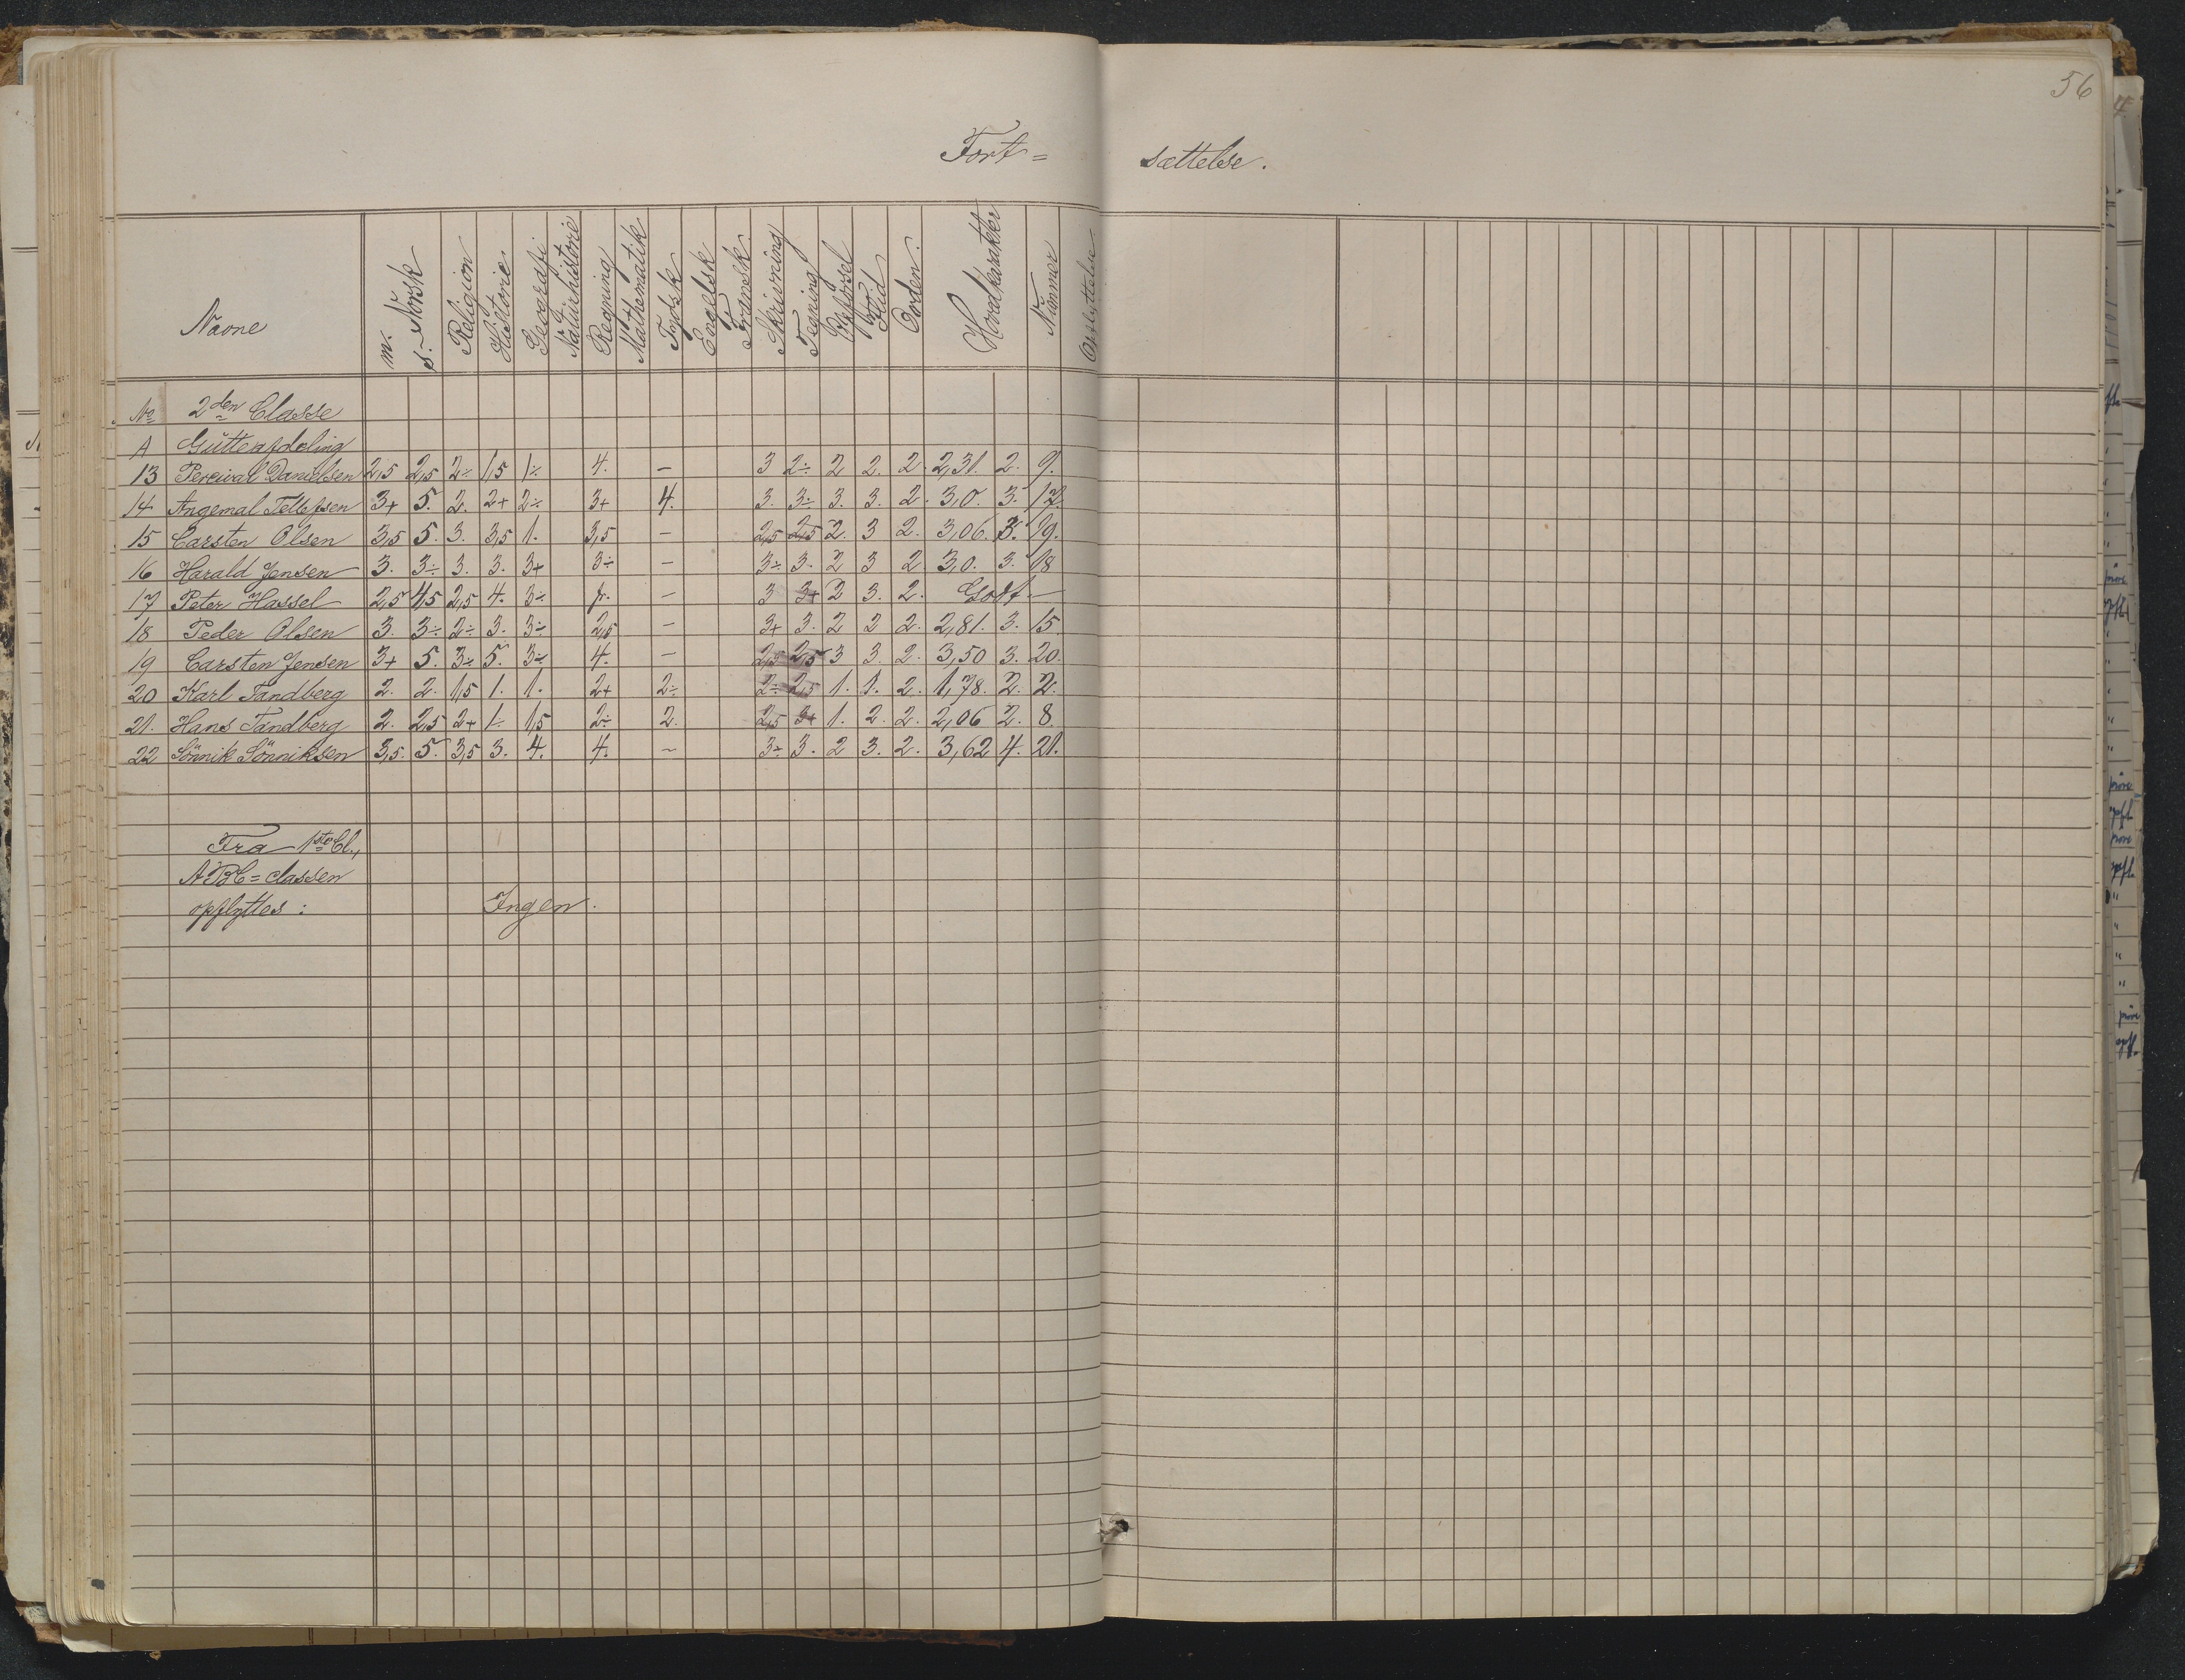 56
Fort= sættelse.
Navne m. Norsk s. Religion Historie Geografi Naturhistorie Regning Mathematik Tydsk Engelsk Fransk Skrivning Tegning Opførsel Flid Orden. Hovedkarakter Nummer Opflyttelse
No 2den Classe
A Gutteafdeling
13 Percival Danielsen 2,5 2,5 2÷ 1,5 1÷ 4. — 3 2÷ 2 2. 2. 2,31. 2. 9.
14 Angemal Tellefsen 3+ 5. 2. 2+ 2÷ 3+ 4. 3. 3÷ 3. 3. 2. 3,0. 3. 17.
15 Carsten Olsen 3,5 5. 3. 3,5 1. 3,5 — 2,5 2,5 2. 3 2. 3,06. 3. 19.
16 Harald Jensen 3. 3÷ 3. 3. 3+ 3÷ — 3÷ 3. 2 3 2 3,0. 3. 18
17 Peter Hassel 2,5 4,5 2,5 4. 3÷ — 3 3+ 2 3. 2. Godt —
18 Peder Olsen 3. 3÷ 2÷ 3. 3÷ 2,5 — 3+ 3. 2 2 2. 2,81. 3. 15.
19 Carsten Jensen 3+ 5. 3÷ 5. 3÷ 4. — 2,5 2,5 3 3. 2. 3,50 3. 20.
20 Karl Tandberg 2. 2. 1,5 1. 1. 2+ 2÷ 2÷ 2,5 1. 1. 2. 1,78. 2. 2.
21. Hans Tandberg 2. 2,5 2+ 1÷ 1,5 2÷ 2. 2,5 3+ 1. 2. 2. 2,06 2. 8.
22 Sönnik Sönniksen 3,5. 5. 3,5 3. 4. 4. — 3÷ 3. 2 3. 2. 3,62 4. 21.
Fra 1ste Cl.,
ABC=classen
opflyttes: Ingen.